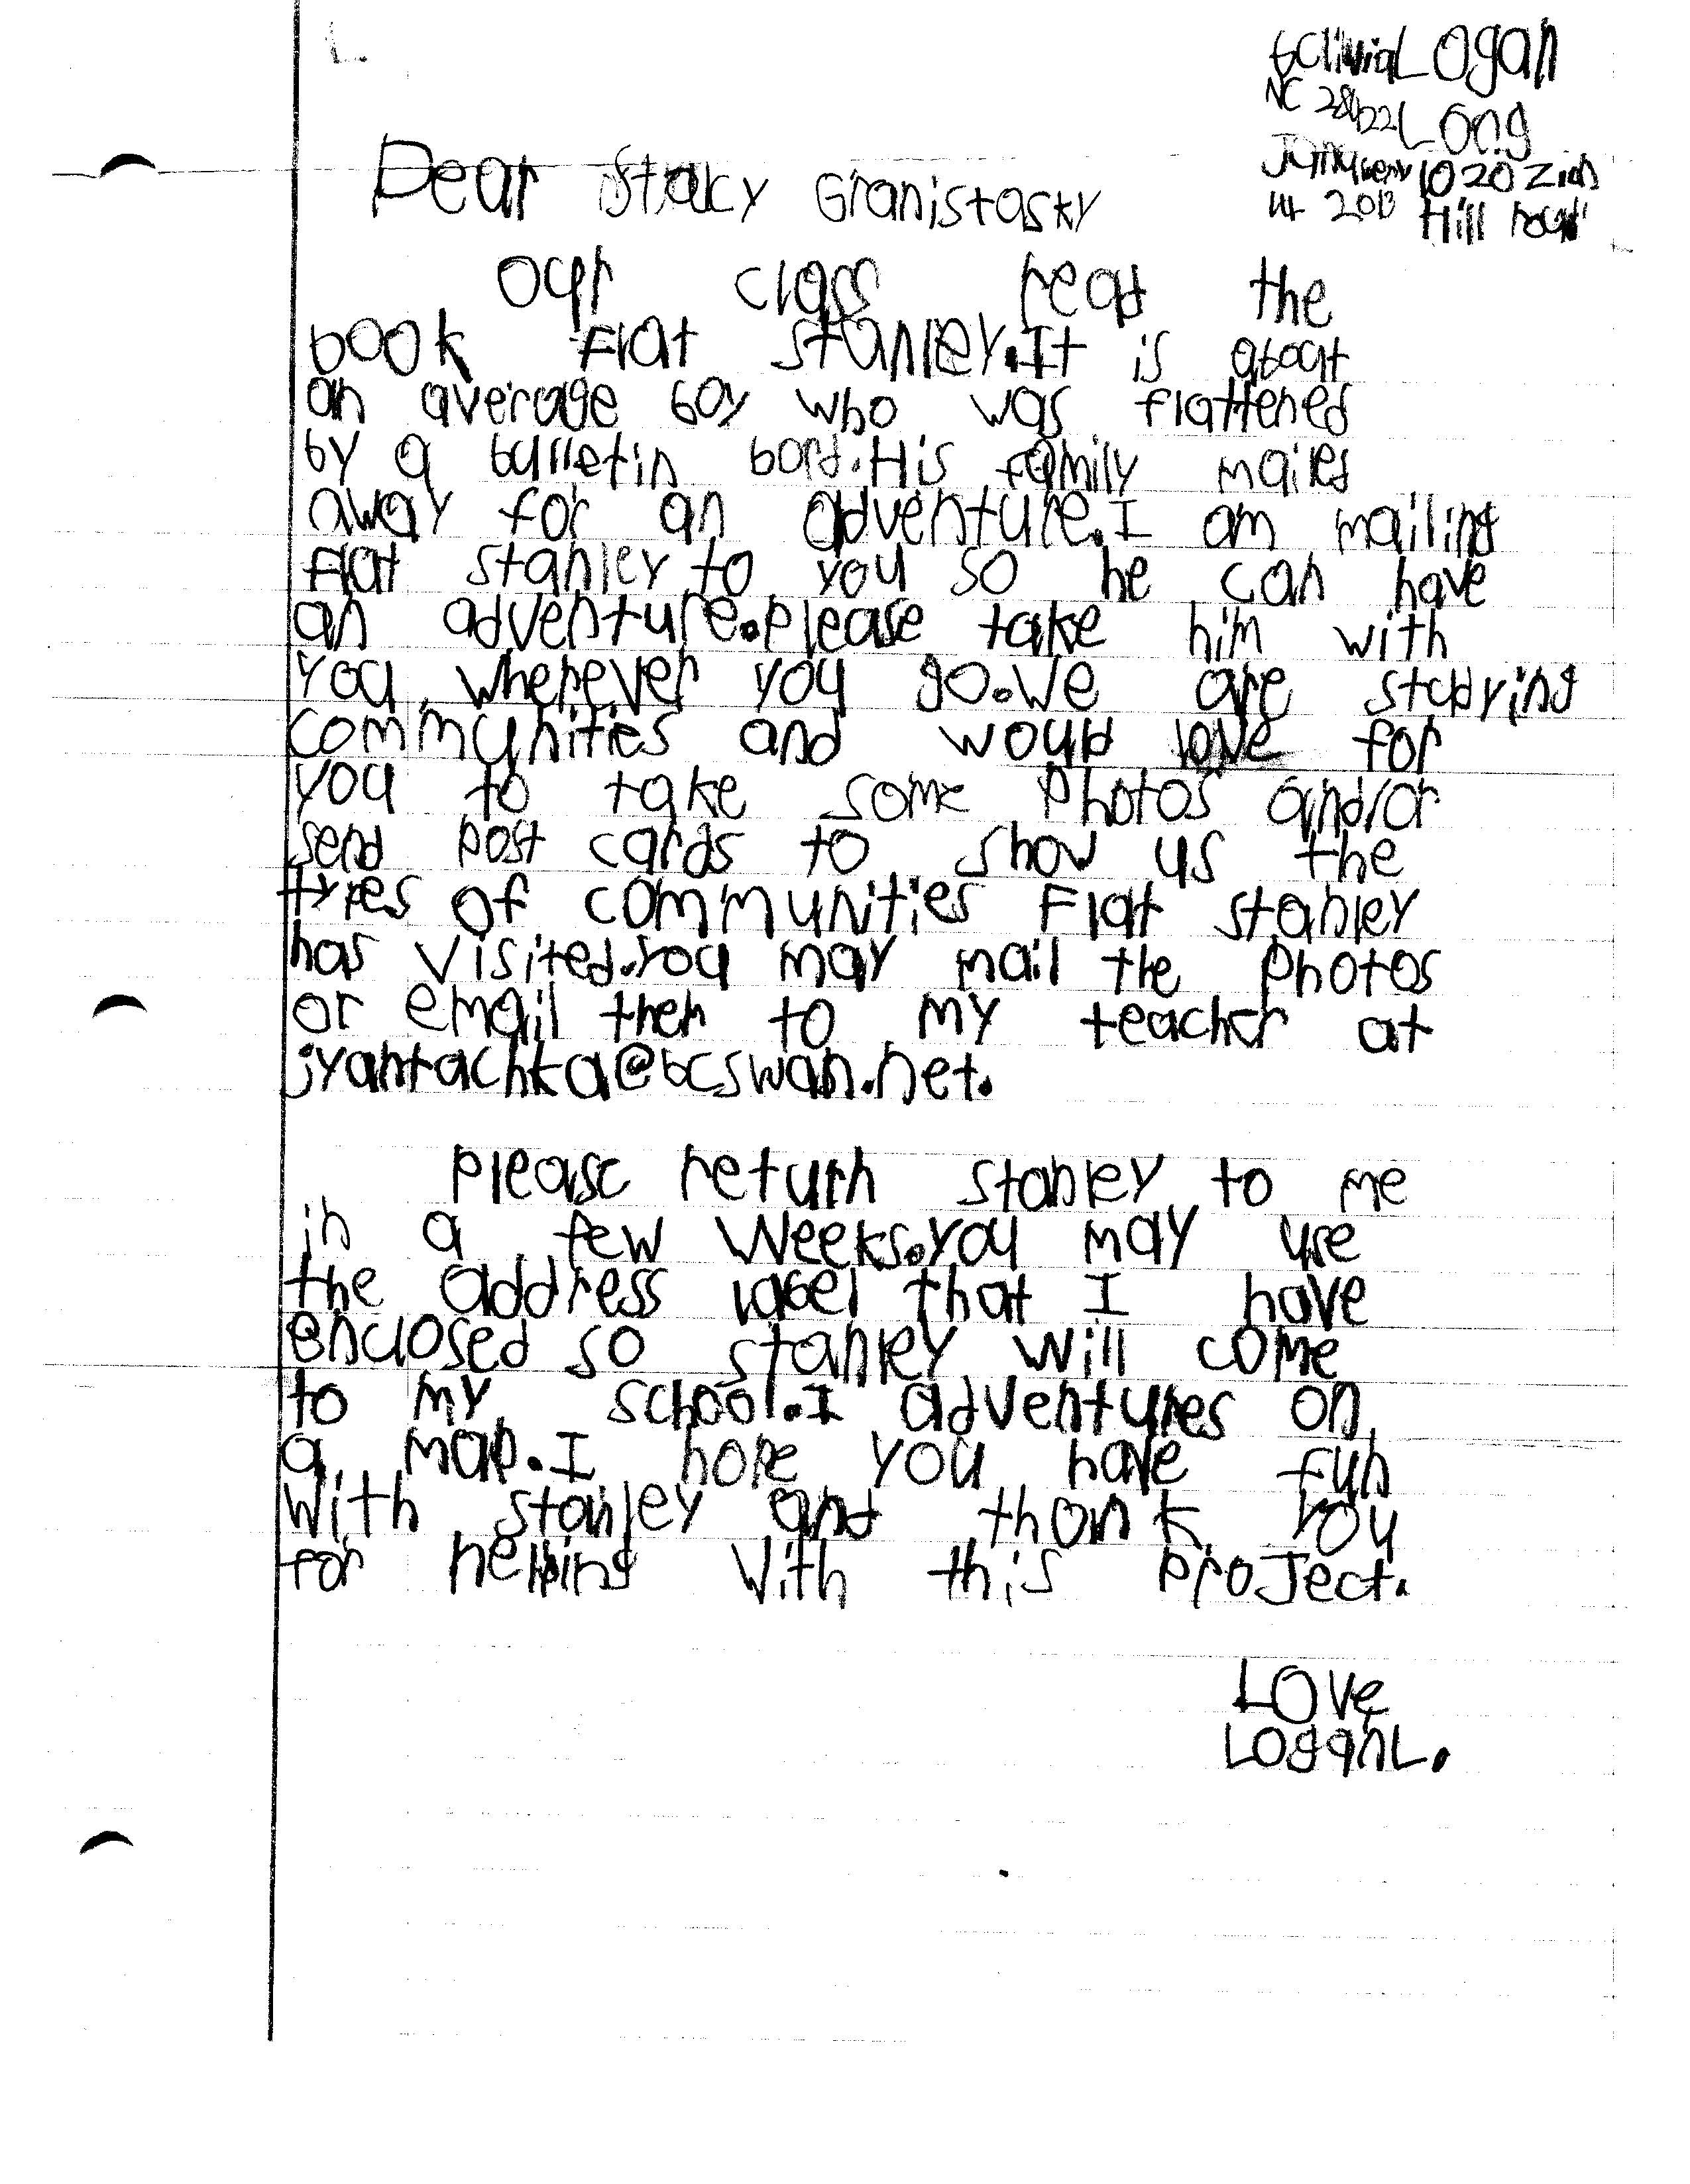 Logan
NC 28422 Long
10 20 Zion
14 2013 Hill road
Dear Stacy Granistasky
our class read the
book Flat Stanley. It is about
an average boy who was flattened
by a bulletin bord. His family mailed
away for an adventure. I am mailing
Flat Stanley to you so he can have
an adventure. please take him with
you wherever you go. We are studying
communities and would love for
you to take some photos and/or
send post cards to show us the
types of communities Flat Stanley
has visited. you may mail the photos
or email them to my teacher at
jyantachka@bcswan.net.
please return Stanley to me
in a few Weeks. you may use
the address label that I have
enclosed so Stanley will come
to my school. I adventures on
a map. I hope you have fun
with Stanley and thank you
for helping with this project.
Love
Logan L.